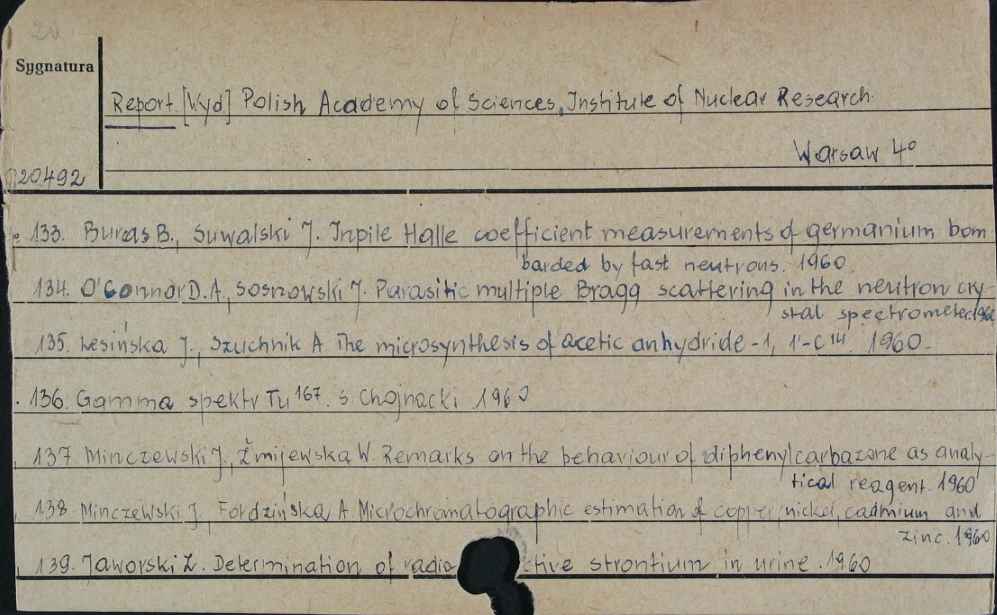 Sygnatura
Report. [Wyd] Polish Academy of Sciences, Institute of Nuclear Research
Warsaw 4°
20492
133. Buras B., Suwalski J. Inpile Halle coefficient measurements of germanium bom
barded by fast neutrons. 1960.
134. O'Connor D.A., Sosnowski J. Parasitic multiple Bragg scattering in the neutron cry-
stal spectrometer. 1960
135. Lesińska J., Szuchnik A The microsynthesis of acetic anhydride -1, 1'-C14. 1960.
136. Gamma spektr Tu 167. S. Chojnacki 1960
137 Minczewski J., Żmijewska W. Remarks on the behaviour of diphenylcarbazone as analy-
tical reagent. 1960
138 Minczewski J. Fordzińska A Microchromatographic estimation of copper, nickel, cadmium and
zinc. 1960
139. Jaworski Z. Determination of radio ctive strontium in urine. 1960